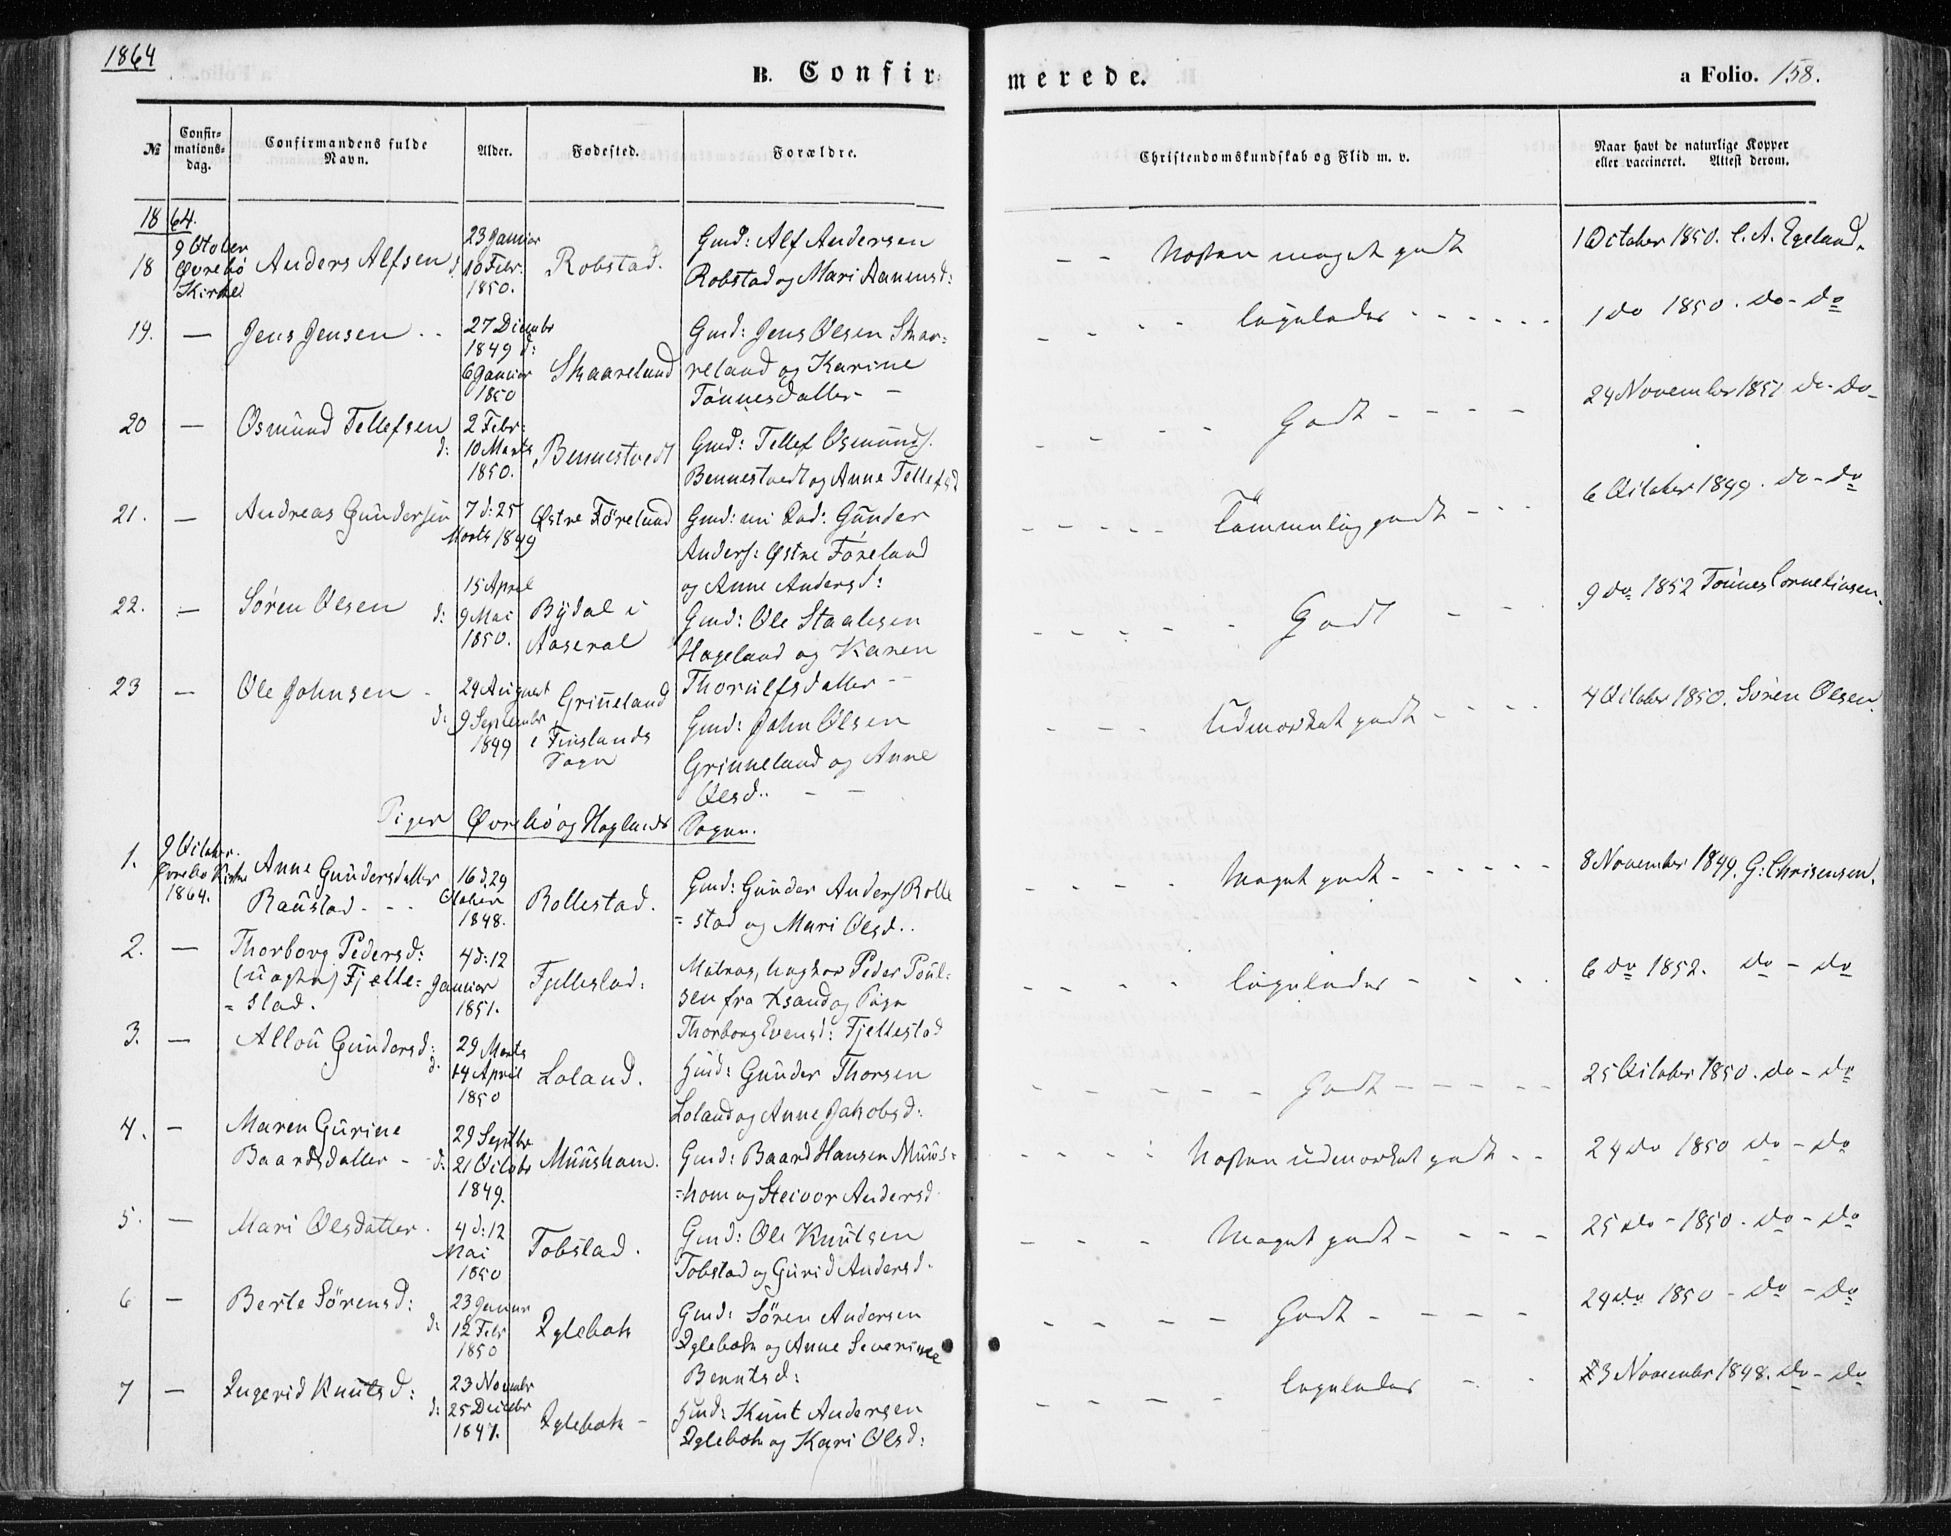 1864
B. Confirmerede.
a Folio. 158.
№
Confirmations-dag.
Confirmandens fulde Navn.
Alder.
Fødested.
Forældre.
Christendomskundskab og Flid m. v.
Naar havt de naturlige Kopper eller vaccineret. Attest derom.
1864.
18 9 October Øvrebø Kirke Anders Alfsen 23 Januar d: 10 Febr. 1850. Robstad. Gmd: Alf Andersen Robstad og Mari Aanensd: Næsten meget godt 1 October 1850. C. A. Egeland.
19. — Jens Jensen 27 Decembr 1849 d: 6 Januar 1850 Skaareland Gmd: Jens Olsen Skaareland og Karine Tønnesdatter - 1 do 1850. do - do
20 — Osmund Tellefsen 2 Febr: d: 10 Marts 1850. Bennestvedt Gmd: Tellef Osmunds. Bennestvedt og Anne Tellefsd Godt 24 November 1851 do - do
21. — Andreas Gundersen 7 d: 25 Marts 1849 Østre Føreland Gmd: Gunder Anders: Østre Føreland og Anne Andersd: Temmelig godt 6 October 1849. do - do
22. — Søren Olsen 15 April d: 9 Mai 1850. Bydal i Aaseral Gmd: Ole Staalesen Hageland og Karen Thorulfsdatter Godt 9 do 1852 Tønnes Corneliusen.
23 — Ole Johnsen 29 August d: 9 Septembr 1849 Grinneland i Finslands Sogn Gmd: John Olsen Grinneland og Anne Olsd. Udmærket godt 4 October 1850. Søren Olsen.
Piger Øvrebø og Hæglands Sogne.
1. 9 October. Øvrebø Kirke 1864. Anne Gundersdatter Raustad 16 d. 29 Octobr 1848. Rollestad. Gmd: Gunder Anders Rollestad og Mari Olsd. Meget godt 8 November 1849. G: Chrisensen.
2. — Thorborg Pedersd: (uægte) Fjellestad. 4 d: 12 Januar 1851. Fjellestad: Matros, Peder Poulsen fra Xsand og Pige Thorborg Evensd: Fjellestad 6 do 1852. do - do
3. — Allou Gundersd: 29 Marts d. 14 April 1850 Loland. Hmd: Gunder Thorsen Loland og Anne Jakobsd: Godt 25 October 1850. do - do
4. — Maren Gurine Baardsdatter 29 Septbr d: 21 Octobr 1849. Muusham. Gmd: Baard Hansen Muushom og Steivor Andersd Næsten udmærket godt 24 do 1850 do - do
5. — Mari Olsdatter. 4 d: 12 Mai 1850 Tobstad. Gmd: Ole Knutsen Tobstad og Gurid Andersd. Meget godt 25 do - 1850. do - do
6 — Berte Sørensd: 23 Januar d: 12 Febr 1850 Iglebæk Gmd: Søren Andersen Iglebæk og Anne Severine Berntsd: Godt 24 do 1850 - do - do
7 — Ingerid Knutsd: 23 Novembr d: 25 Decbr 1847. Iglebæk - Hmd: Knut Andersen Iglebæk og Kari Olsd: 23 November 1848. do - do